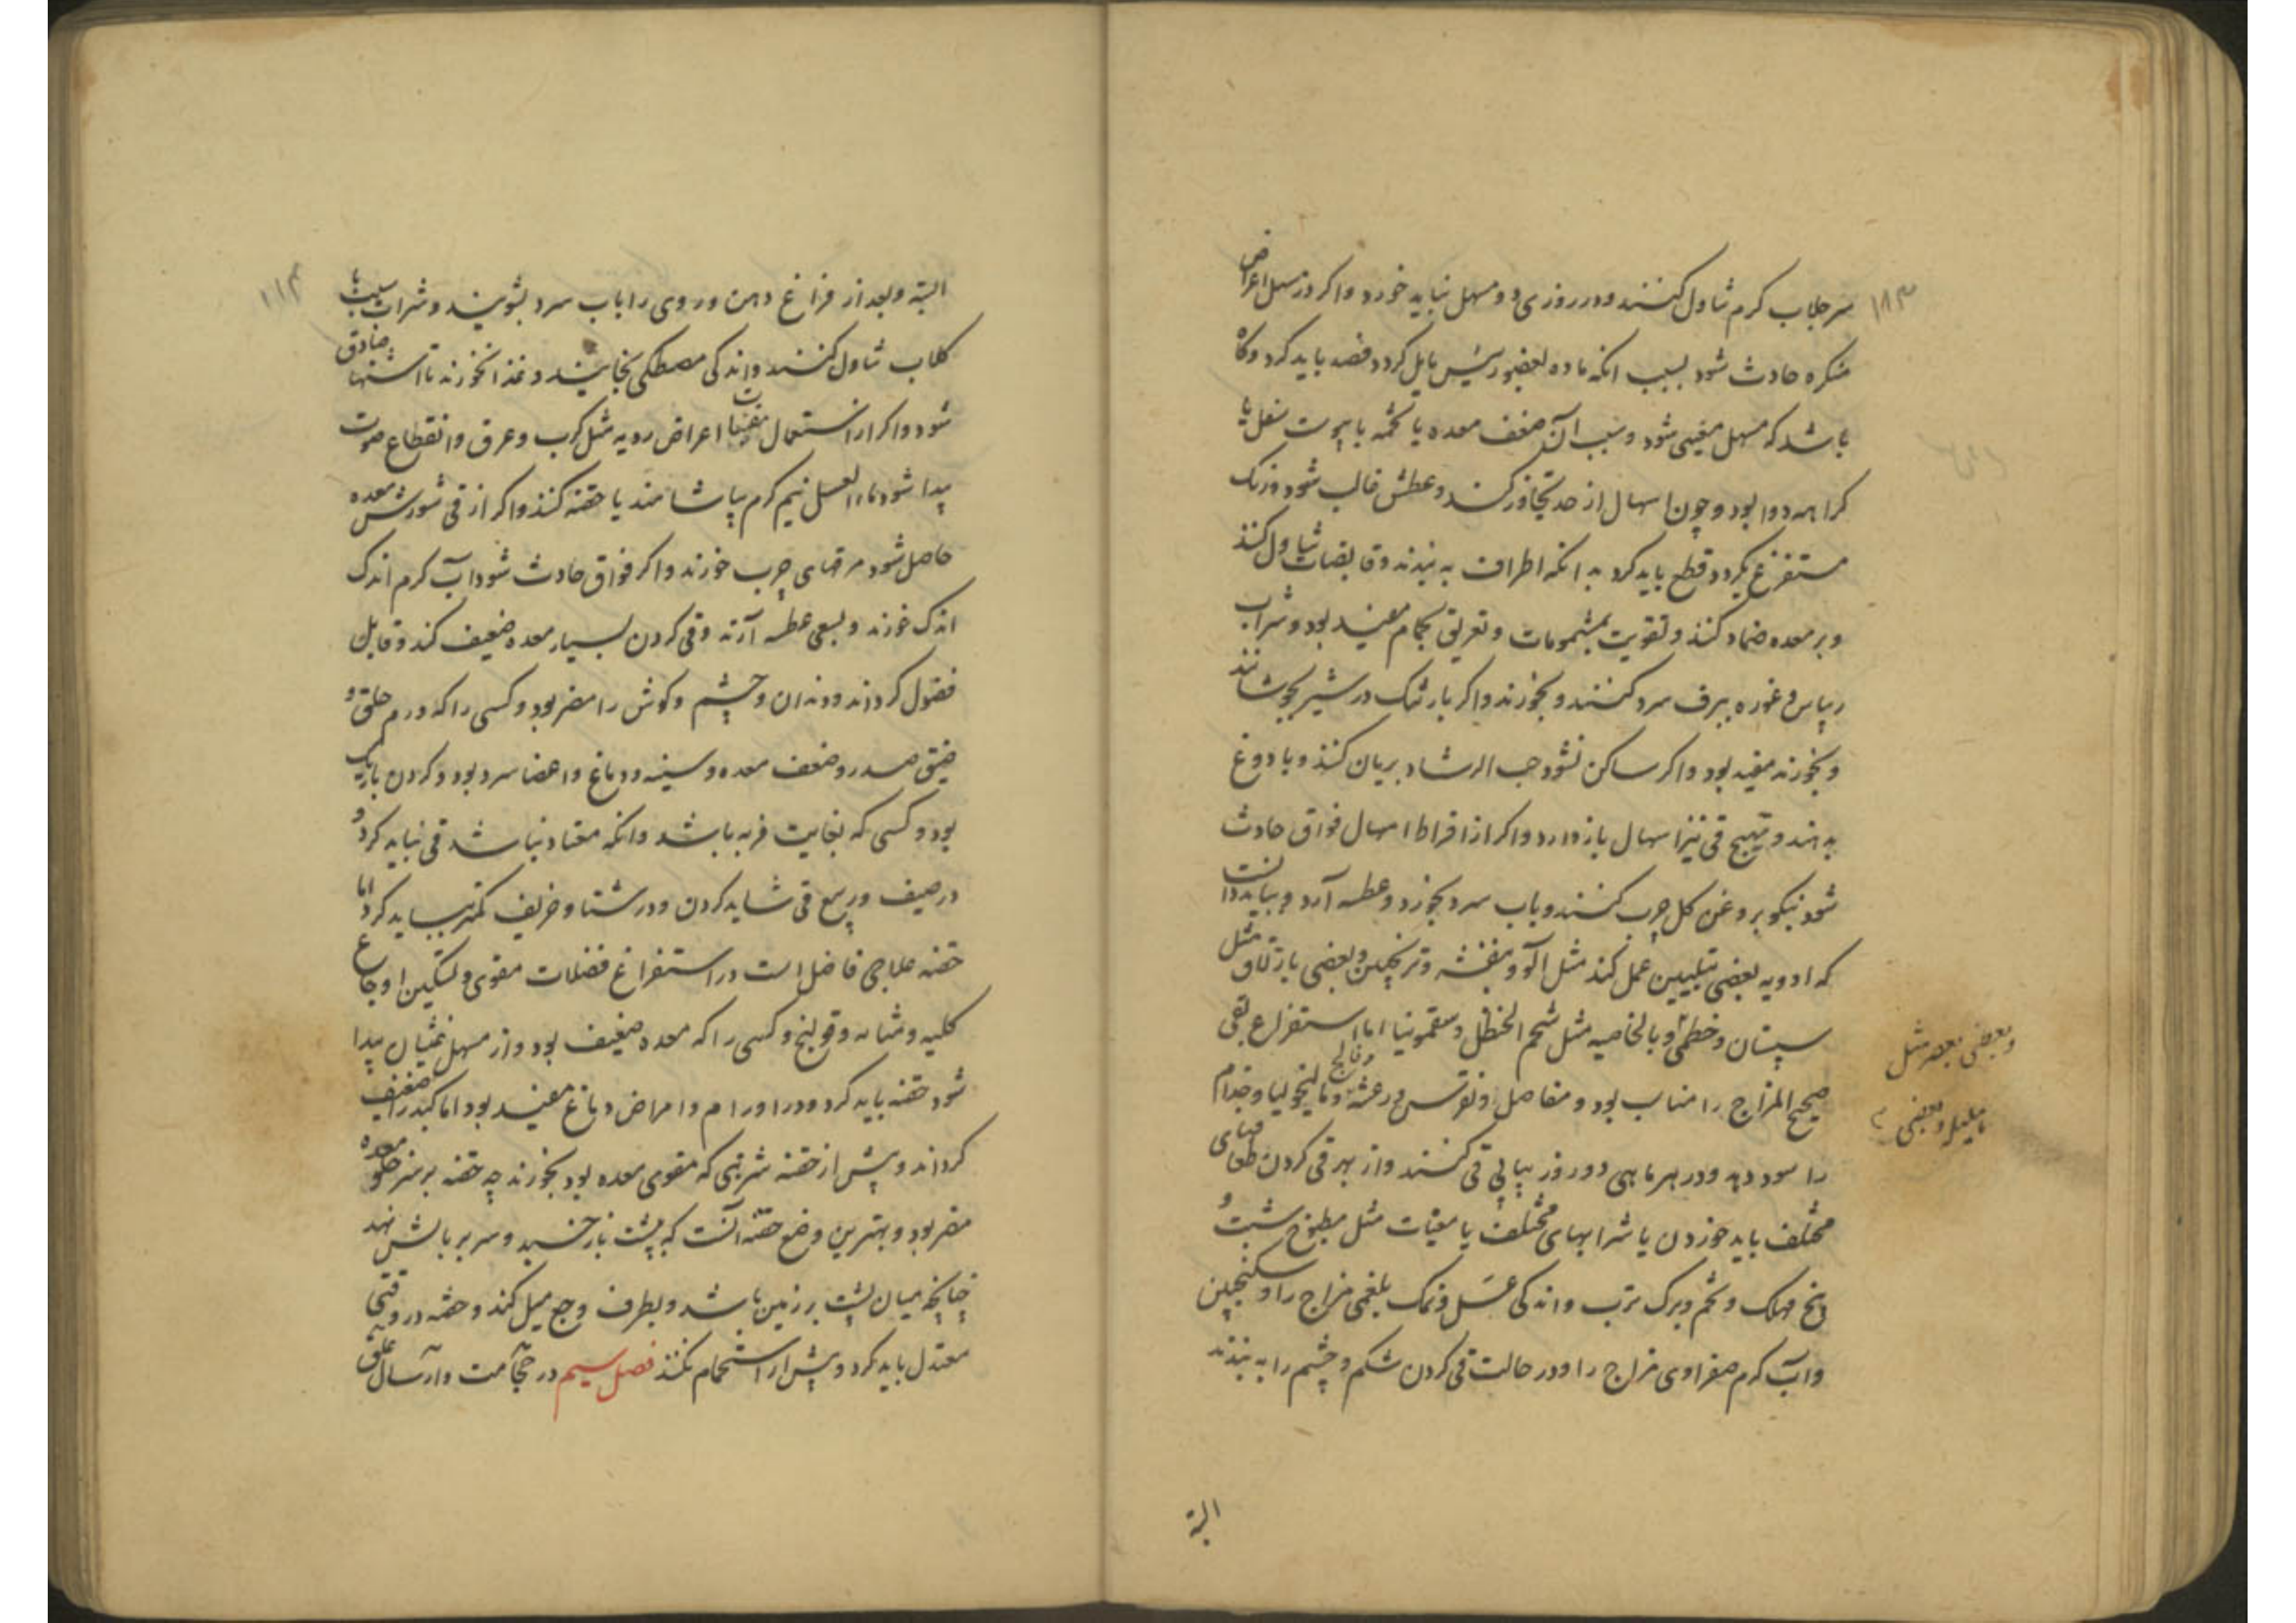 ۱۸۳
سر جلاب کرم تناول کنند و در روزی دو مسهل نباید خورد و اکر در مسهل اعراض
منکره حادث شود بسبب انکه ماده بعضو رئیس مایل کردد فصد باید کرد و کاه
باشد که مسهل مغیی شود و سبب آن ضعف معده یا تخمه یا یبوست ثفل یا
کراهه دوا بود و چون اسهال از حد تجاوز کند و عطش غالب شود و زنک
مستفرغ بکردد قطع باید کرد به انکه اطراف به بندند و قابضات تناول کنند
و بر معده ضماد کنند و تقویت بمشمومات و تعریق بحمام مفید بود و شراب
ریباس و غوره ببرف سرد کنند و بخورند و اکر بارتنک در شیر بجوشانند
و بخورند مفید بود و اکر ساکن نشود حب الرشاد بریان کنند و با دوغ
بدهند و تهییج قی نیز اسهال باز دارد و اکر از افراط اسهال فواق حادث
شود نیکو بروغن کل چرب کنند و باب سرد بخورد و عطسه آرد و بباید دانست
که ادویه بعضی بتلیین عمل کند مثل آلو و بنفشه و ترنجبین و بعضی بازلاق مثل
سپستان و خطمی و بالخاصیه مثل شحم الحنظل و سقمونیا اما استفراغ بقی
و بعضی بعصر مثل
هلیله و بعضی
صحیح المزاج را مناسب بود و مفاصل و نقرس و رعشه و فالج و مالیخولیا و جذام
را سود دهد و در هر ماهی دو روز پیاپی قی کنند و از بهر قی کردن طعامهای
مختلف باید خوردن یا شرابهای مختلف یا مقیات مثل مطبوخ شبت و
و تخم و برک ترب و اندکی عسل و نمک بلغمی مزاج را و سکنجبین
و آب کرم صفراوی مزاج را و در حالت قی کردن شکم و چشم را به بندند
البته
۱۱۴
البته و بعد از فراغ دهن و روی را باب سرد بشویند و شراب سیب با
کلاب تناول کنند و اندکی مصطکی بخایند و غذا نخورند تا اشتها صادق
شود و اکر از استعمال مقییات اعراض ردیه مثل کرب و عرق و انقطاع صوت
پیدا شود ماء العسل نیم کرم بیاشامند یا حقنه کنند و اکر از قی شورش معده
حاصل شود مرقهای چرب خورند و اکر فواق حادث شود آب کرم اندک
اندک خورند و بسعی عطسه آرند و قی کردن بسیار معده ضعیف کند و قابل
فضول کرداند و دندان و چشم و کوش را مضر بود و کسی را که ورم حلق و
ضیق صدر و ضعف معده و سینه و دماغ و اعضا سرد بود و کردن باریک
بود و کسی که بغایت فربه باشد و انکه معتاد نباشد قی نباید کرد و
در صیف و ربیع قی شاید کردن و در شتا و خریف کمتر باید کرد اما
حقنه علاجی فاضل است در استفراغ فضلات مقوی و تسکین اوجاع
کلیه و مثانه و قولنج و کسی را که معده ضعیف بود و از مسهل غثیان پیدا
شود حقنه باید کرد و در اورام و امراض دماغ مفید بود اما کبد را ضعیف
کرداند و پیش از حقنه شربتی که مقوی معده بود بخورند چه حقنه بر سر خلو معده
مضر بود و بهترین وضع حقنه آنست که به پشت باز خسبد و سر بر بالش نهد
چنانچه میان پشت بر زمین باشد و بطرف وجع میل کند و حقنه در وقتی
معتدل باید کرد و پیش از آن استحمام نکنند فصل سیم در حجامت و ارسال علق